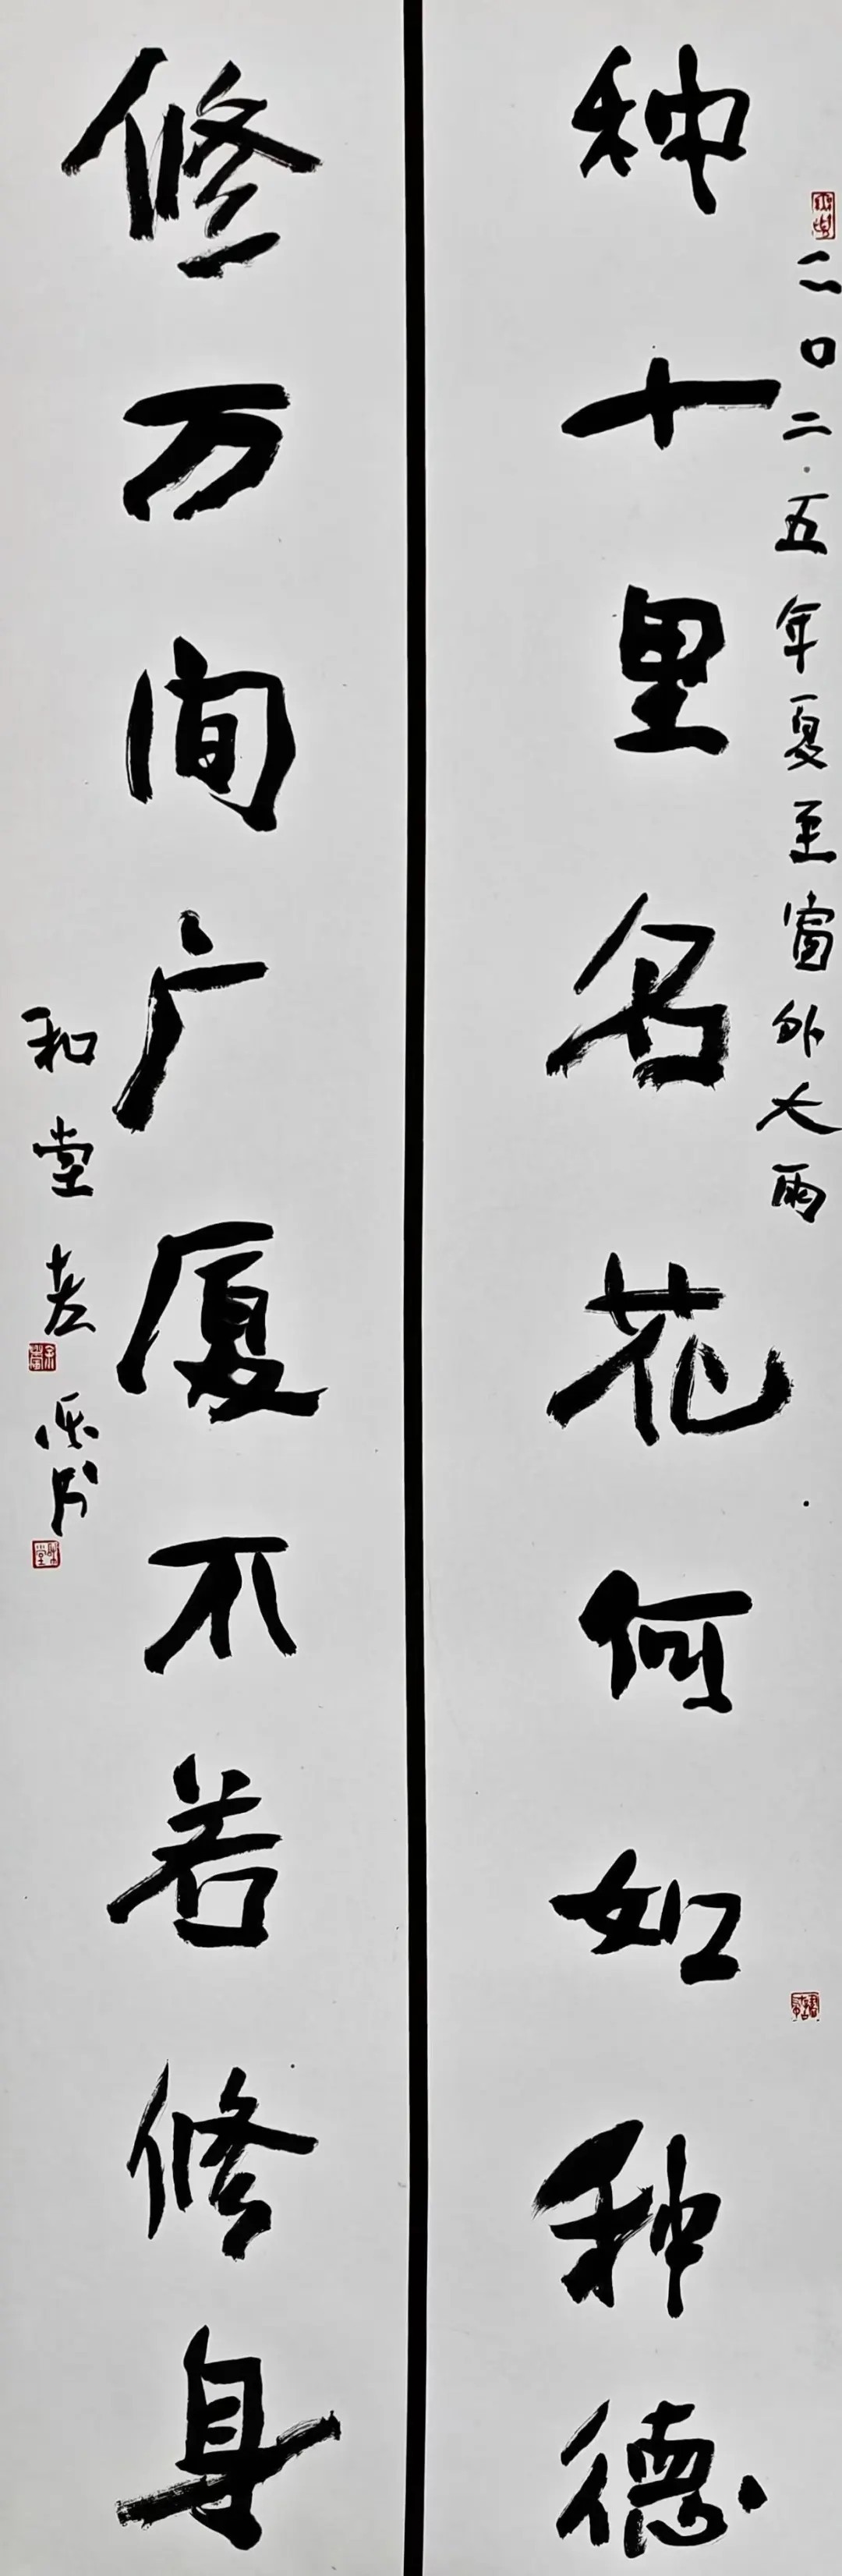 二〇二五年夏至窗外大雨
种十里名花何如种德
修万间广厦不若修身
和堂